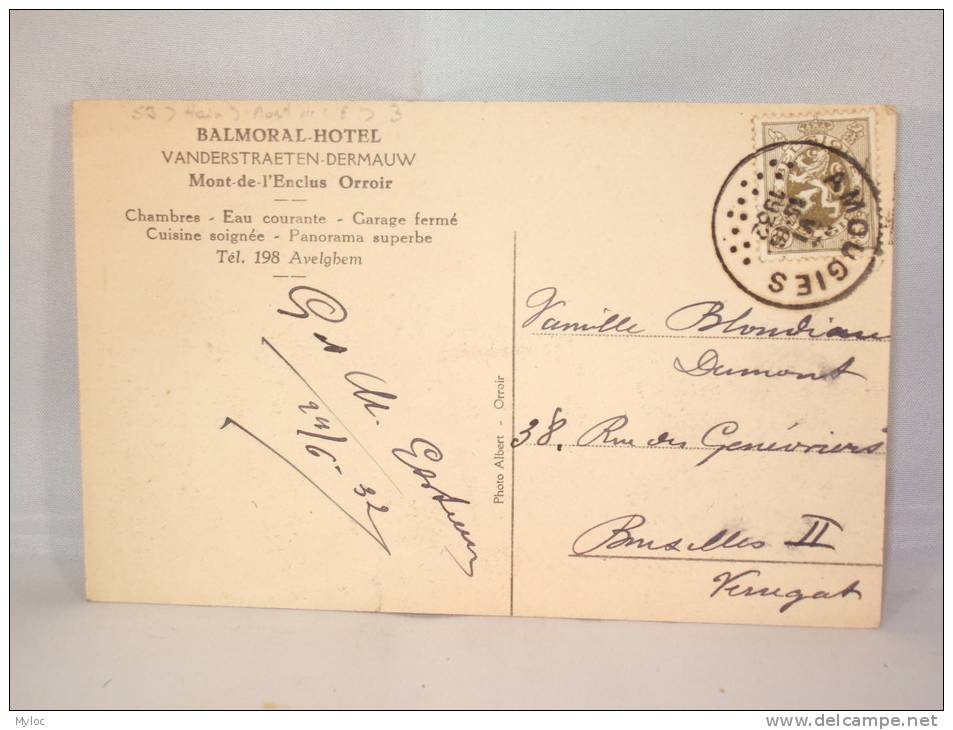 BALMORAL-HOTEL
VANDERSTRAETEN-DERMAUW
Mont-de-l'Enclus Orroir
Chambres - Eau courante - Garage fermé
Cuisine soignée - Panorama superbe
Tél. 198 Avelghem
G et M.
24/6 32
Photo Albert - Orroir
AMOUGIES
1932
Famille Blondiau
Dumont
38, Rue des Genévriers
Bruxelles II
Verregat
Myloc
http://www.delcampe.net